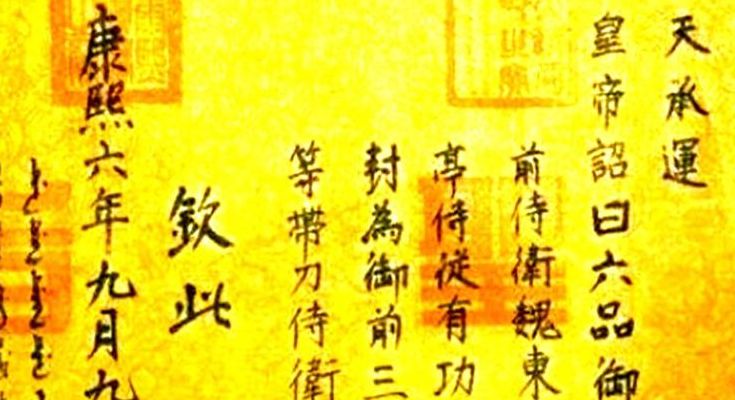 天承運
皇帝詔曰六品御
前侍衛魏東
亭侍從有功
封為御前三
等帶刀侍衛
欽此
康熙六年九月九